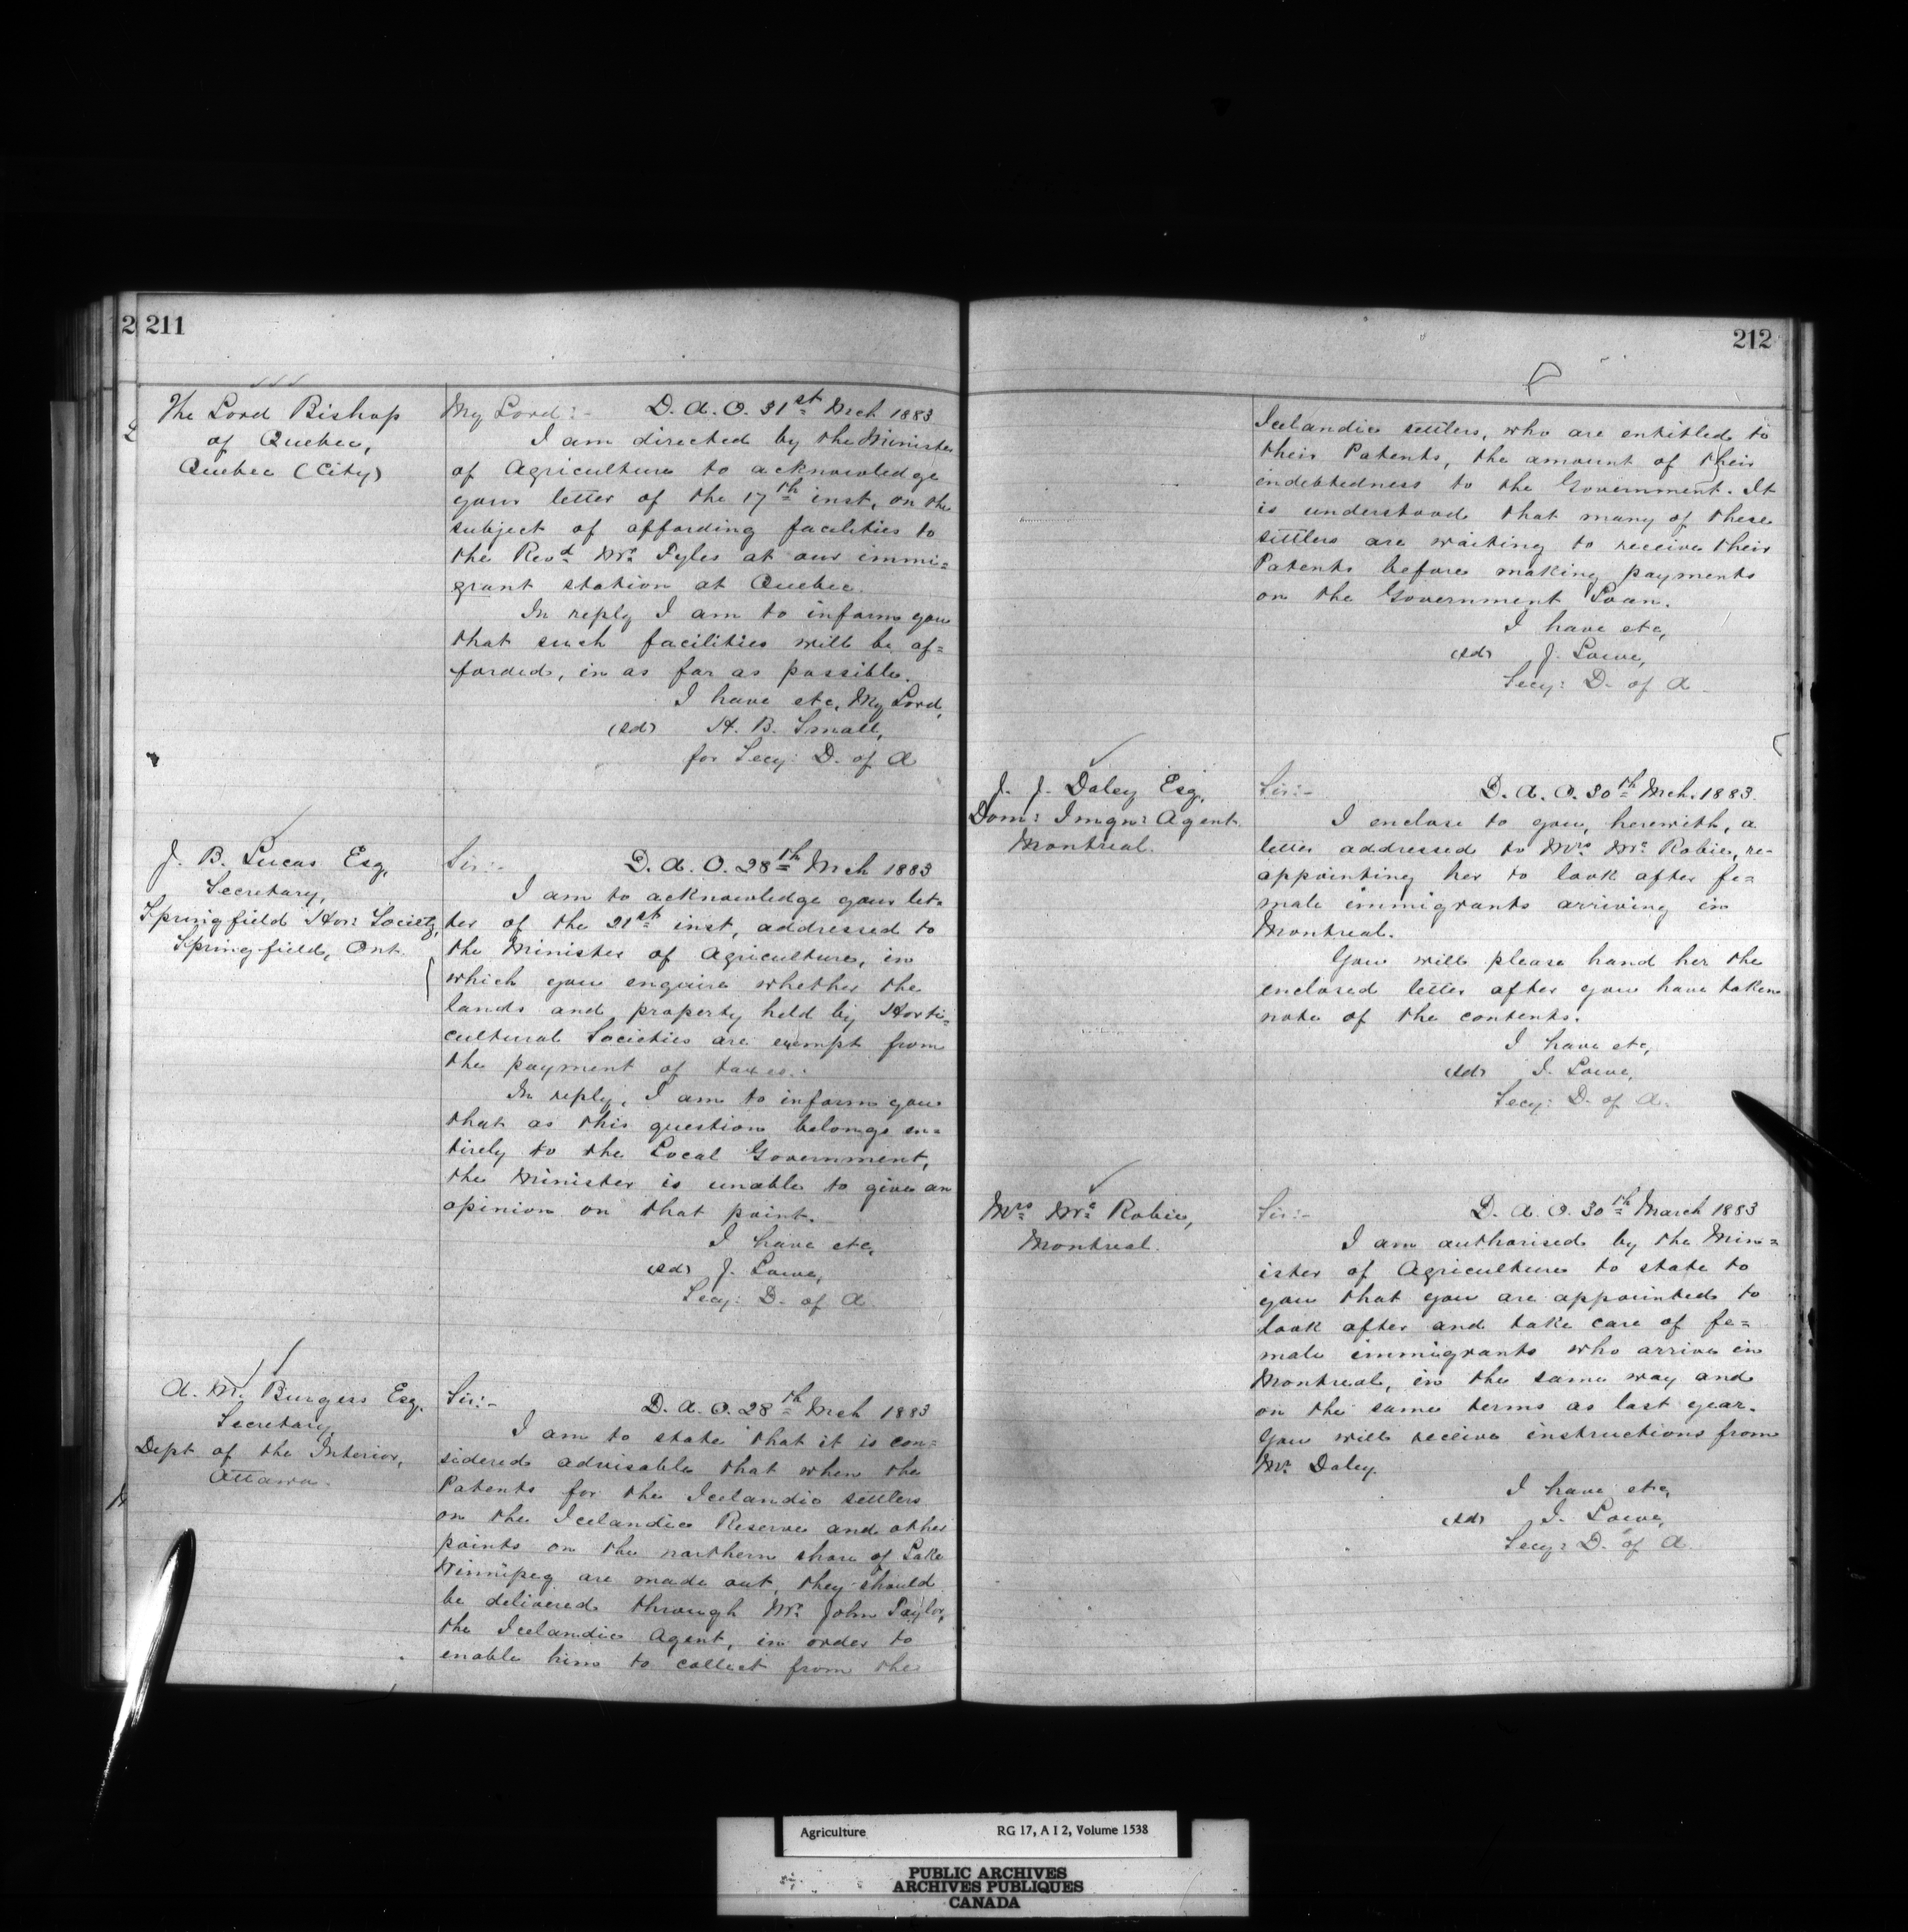 211
The Lord Bishop
of Quebec,
Quebec (City)
My Lord:- D. A. O. 31st Mch 1883
I am directed by the Minister
of Agriculture to acknowledge
your letter of the 17th inst, on the
subject of affording facilities to
the Revd Mr. Fyles at our immi=
grant station at Quebec.
In reply I am to inform you
that such facilities will be af=
forded, in as far as possible.
I have etc, My Lord,
(sd) H. B. Small,
for Secy: D. of A
J. B. Lucas Esq,
Secretary,
Springfield Hor: Society,
Springfield, Ont.
Sir:- D. A. O. 28th Mch 1883
I am to acknowledge your let-
ter of the 21st inst, addressed to
the Minister of Agriculture, in
which you enquire whether the
lands and property held by Horti-
cultural Societies are exempt from
the payment of taxes.
In reply, I am to inform you
that as this question belongs en=
tirely to the Local Government,
the Minister is unable to give an
opinion on that point.
I have etc,
(sd) J. Lowe,
Secy: D. of A
A. M. Burgess Esq,
Secretary
Dept of the Interior,
Ottawa.
Sir:- D. A. O. 28th Mch 1883
I am to state that it is con=
sidered advisable that when the
Patents for the Icelandic settlers
on the Icelandic Reserve and other
points on the northern shore of Lake
Winnipeg are made out, they should
be delivered through Mr. John Taylor,
the Icelandic Agent, in order to
enable him to collect from the
212
Icelandic settlers, who are entitled to
their Patents, the amount of their
indebtedness to the Government. It
is understood that many of these
settlers are waiting to receive their
Patents before making payments
on the Government Loan.
I have etc,
(sd) J. Lowe,
Secy: D. of A
J. J. Daley Esq,
Dom: Imgn: Agent
Montreal.
Sir:- D. A. O. 30th Mch. 1883.
I enclose to you, herewith, a
letter addressed to Mrs Mc Robie, re-
appointing her to look after fe=
male immigrants arriving in
Montreal.
You will please hand her the
enclosed letter after you have taken
note of the contents.
I have etc,
(sd) J. Lowe,
Secy: D. of A.
Mrs Mc Robie,
Montreal.
Sir:- D. A. O. 30th March 1883
I am authorised by the Min=
ister of Agriculture to state to
you that you are appointed to
look after and take care of fe=
male immigrants who arrive in
Montreal, in the same way and
on the same terms as last year.
You will receive instructions from
Mr. Daley.
I have etc,
(sd) J. Lowe,
Secy: D. of A
Agriculture RG 17, A I 2, Volume 1538
PUBLIC ARCHIVES
ARCHIVES PUBLIQUES
CANADA